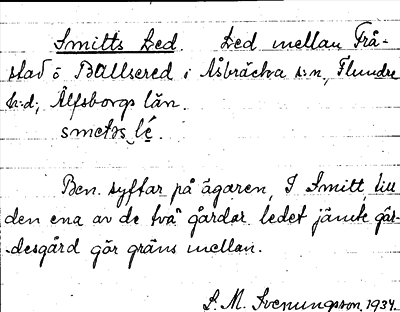 Smitts Led. Led mellan Frå-
stad o Ballsered i Åsbräcka s:n, Flundre
h:d, Älfsborgs län.
smetəs lé.
Ben. syftar på ägaren, J Smitt, till
den ena av de två gårdar ledet jämte gär-
-desgård gör gräns mellan.
S. M. Svenungsson, 1934.